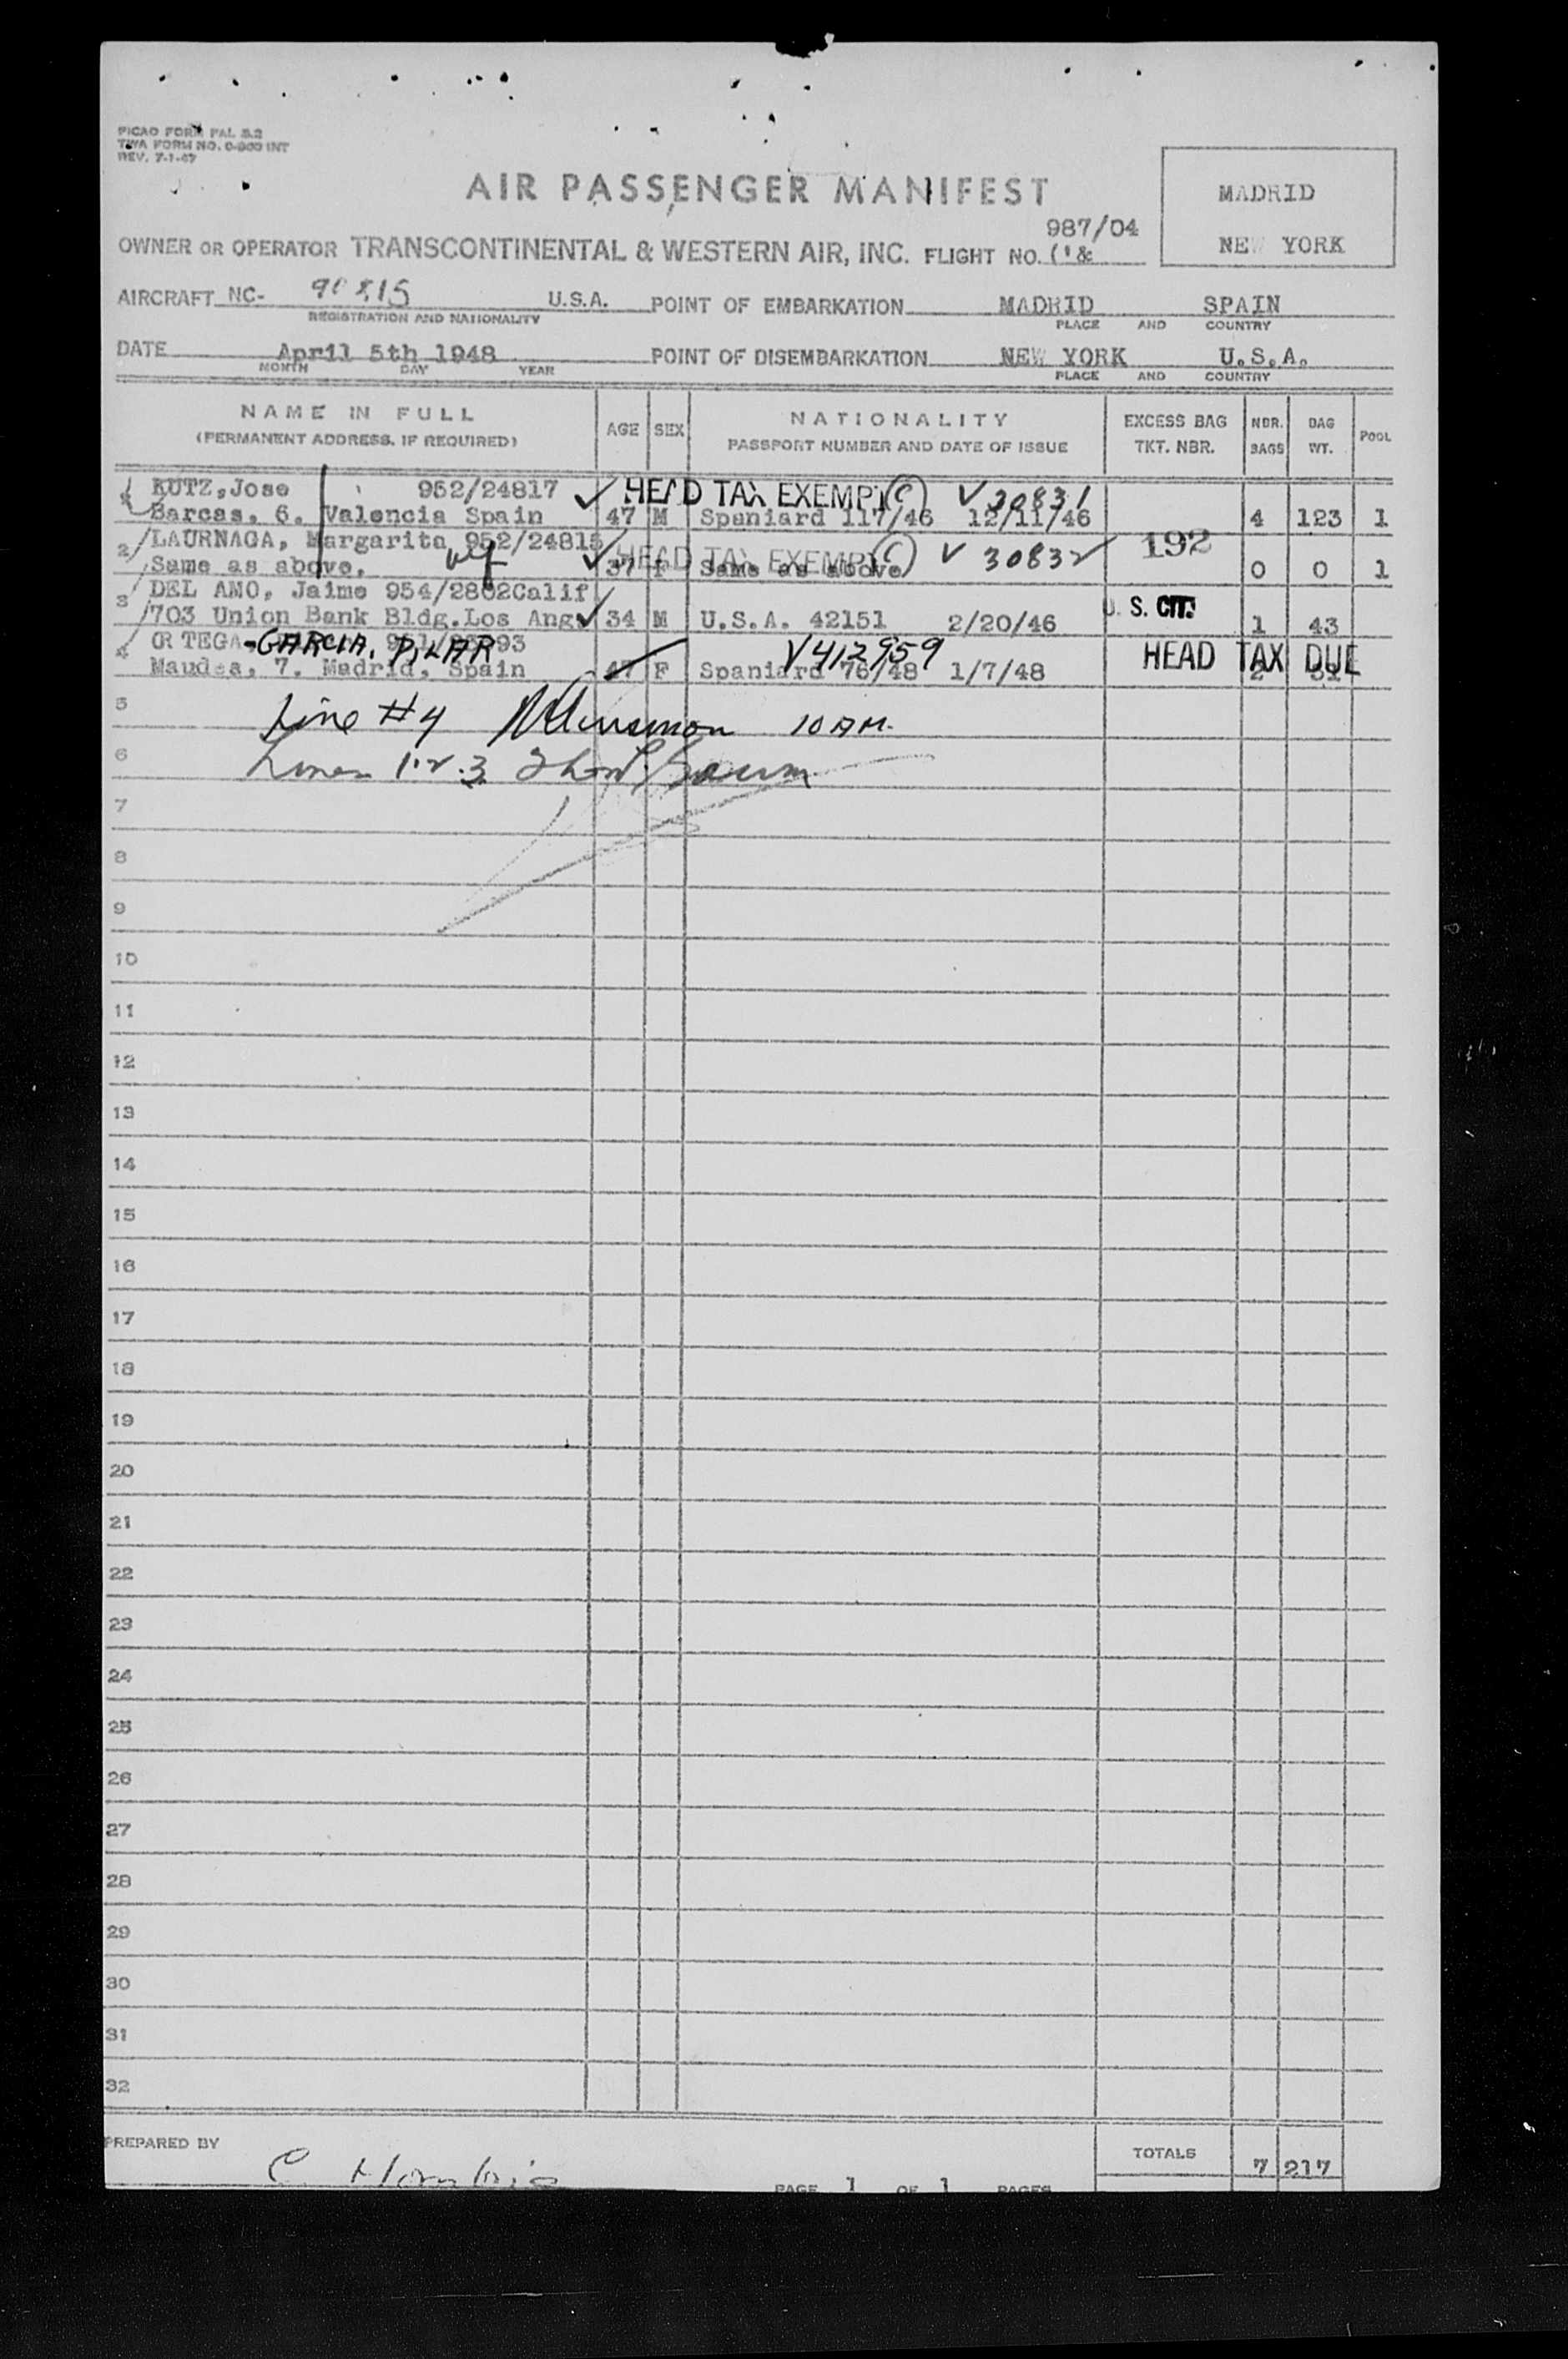 PICAO FORM PAL 8.2
TWA FORM NO. 0-800 INT
REV. 7-1-47
AIR PASSENGER MANIFEST
MADRID
NEW YORK
987/04
OWNER OR OPERATOR TRANSCONTINENTAL & WESTERN AIR, INC. FLIGHT NO. ('&
AIRCRAFT NC- 90815 U.S.A. POINT OF EMBARKATION MADRID SPAIN
REGISTRATION AND NATIONALITY PLACE AND COUNTRY
DATE April 5th 1948 POINT OF DISEMBARKATION NEW YORK U.S.A.
MONTH DAY YEAR PLACE AND COUNTRY
NAME IN FULL AGE SEX NATIONALITY EXCESS BAG NBR. BAG POOL
(PERMANENT ADDRESS, IF REQUIRED) PASSPORT NUMBER AND DATE OF ISSUE TKT. NBR. BAGS WT.
1 KUTZ,Jose 952/24817 HEAD TAX EXEMPT C V30831
Barcas, 6. Valencia Spain 47 M Spaniard 117/46 12/11/46 4 123 1
2 LAURNAGA, Margarita 952/24815 HEAD TAX EXEMPT C V 30832 192
Same as above. 37 F Same as above 0 0 1
3 DEL AMO, Jaime 954/2802Calif
703 Union Bank Bldg.Los Ang. 34 M U.S.A. 42151 2/20/46 U.S. CIT. 1 43
4 ORTEGA-GARCIA, PILAR V412959 HEAD TAX DUE
Maudes, 7. Madrid, Spain 47 F Spaniard 76/48 1/7/48 2 51
5 Line #4 10 AM.
6 Lines 1.2.3
7
8
9
10
11
12
13
14
15
16
17
18
19
20
21
22
23
24
25
26
27
28
29
30
31
32
PREPARED BY TOTALS 7 217
PAGE 1 OF 1 PAGES